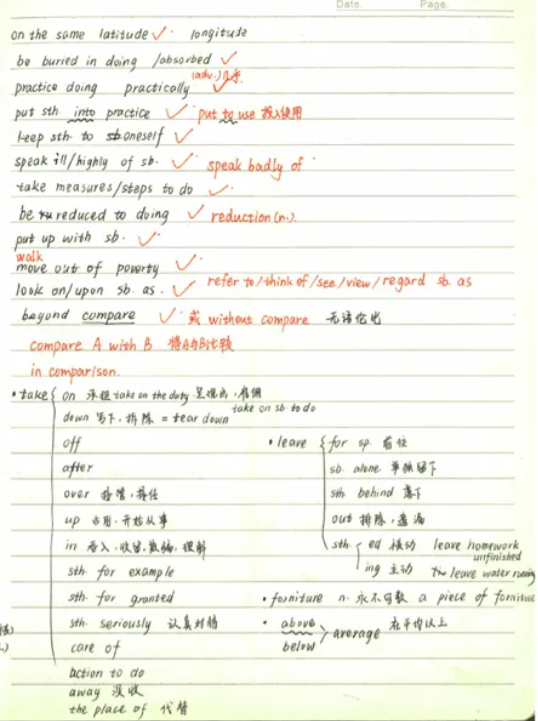 Date. Page.
on the same latitude ✓ longitude
be buried in doing /absorbed ✓
practice doing practically ✓ (adv.)几乎
put sth. into practice ✓ put to use 投入使用
keep sth. to oneself ✓
speak ill/highly of sb. ✓ speak badly of
take measures/steps to do ✓
be reduced to doing ✓ reduction (n.).
put up with sb. ✓
walk
move out of poverty ✓
look on/upon sb. as. ✓ refer to/think of/see/view/regard sb. as
beyond compare ✓ 或 without compare 无法伦比
compare A with B 将A与B比较
in comparison.
• take { on 承担 take on the duty 呈现出,雇佣
take on sb to do
down 写下,拆除 = tear down
off • leave { for sp. 前往
after sb. alone 单独留下
over 接管,接任 sth. behind 落下
up 占用,开始从事 out 排除,遗漏
in 吞入,收留,欺骗,理解 sth. ed 被动 leave homework unfinished
sth. for example ing 主动 leave water running
sth. for granted • forniture n. 永不可数 a piece of forniture
sth. seriously 认真对待 • above
care of below average 在平均以上
action to do
away 没收
the place of 代替